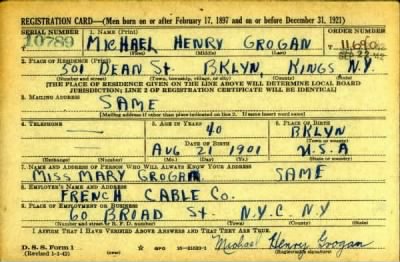 REGISTRATION CARD—(Men born on or after February 17, 1897 and on or before December 31, 1921)
SERIAL NUMBER 1. NAME (Print) ORDER NUMBER
10789 MICHAEL HENRY GROGAN
(First) (Middle) (Last)
2. PLACE OF RESIDENCE (Print)
501 DEAN St. BKLYN, KINGS N.Y.
(Number and street) (Town, township, village, or city) (County) (State)
[THE PLACE OF RESIDENCE GIVEN ON THE LINE ABOVE WILL DETERMINE LOCAL BOARD
JURISDICTION; LINE 2 OF REGISTRATION CERTIFICATE WILL BE IDENTICAL]
3. MAILING ADDRESS
SAME
[Mailing address if other than place indicated on line 2. If same insert word same]
4. TELEPHONE 5. AGE IN YEARS 6. PLACE OF BIRTH
— 40 BKLYN
DATE OF BIRTH (Town or county)
AUG 21 1901 U.S.A
(Exchange) (Number) (Mo.) (Day) (Yr.) (State or country)
7. NAME AND ADDRESS OF PERSON WHO WILL ALWAYS KNOW YOUR ADDRESS
MISS MARY GROGAN SAME
8. EMPLOYER'S NAME AND ADDRESS
FRENCH CABLE Co.
9. PLACE OF EMPLOYMENT OR BUSINESS
60 BROAD St. N.Y.C. N.Y
(Number and street or R. F. D. number) (Town) (County) (State)
I AFFIRM THAT I HAVE VERIFIED ABOVE ANSWERS AND THAT THEY ARE TRUE.
D. S. S. Form 1
(Revised 1-1-42) GPO 16—21630-1
Michael Henry Grogan
(Registrant's signature)